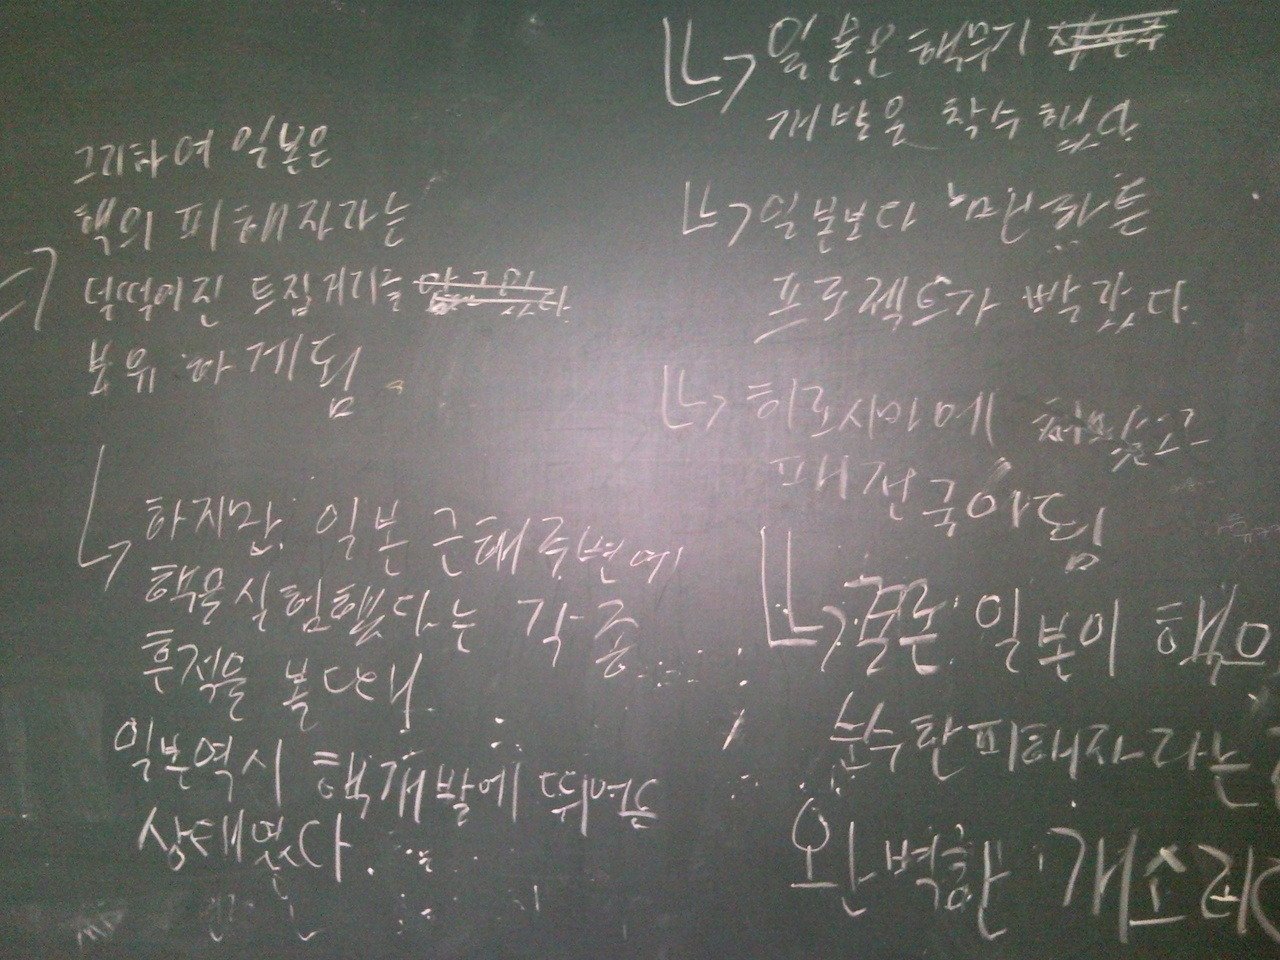 그리하여 일본은
핵의 피해자라는
덕떡어진 트집거리를
보유 하게됨
하지만, 일본 근해주변에
핵을실험했다는 각종
흔적을 볼 다대.
일본역시 핵개발에 뛰어든
상태였다.
일본은 핵무기
개발을 착수했다
일본보다 맨하튼
프로젝트가 빨랐다.
히로시마에 쳐맞고
패전국이됨
결론: 일본이 핵의
순수한 피해자라는
완벽한 개소리